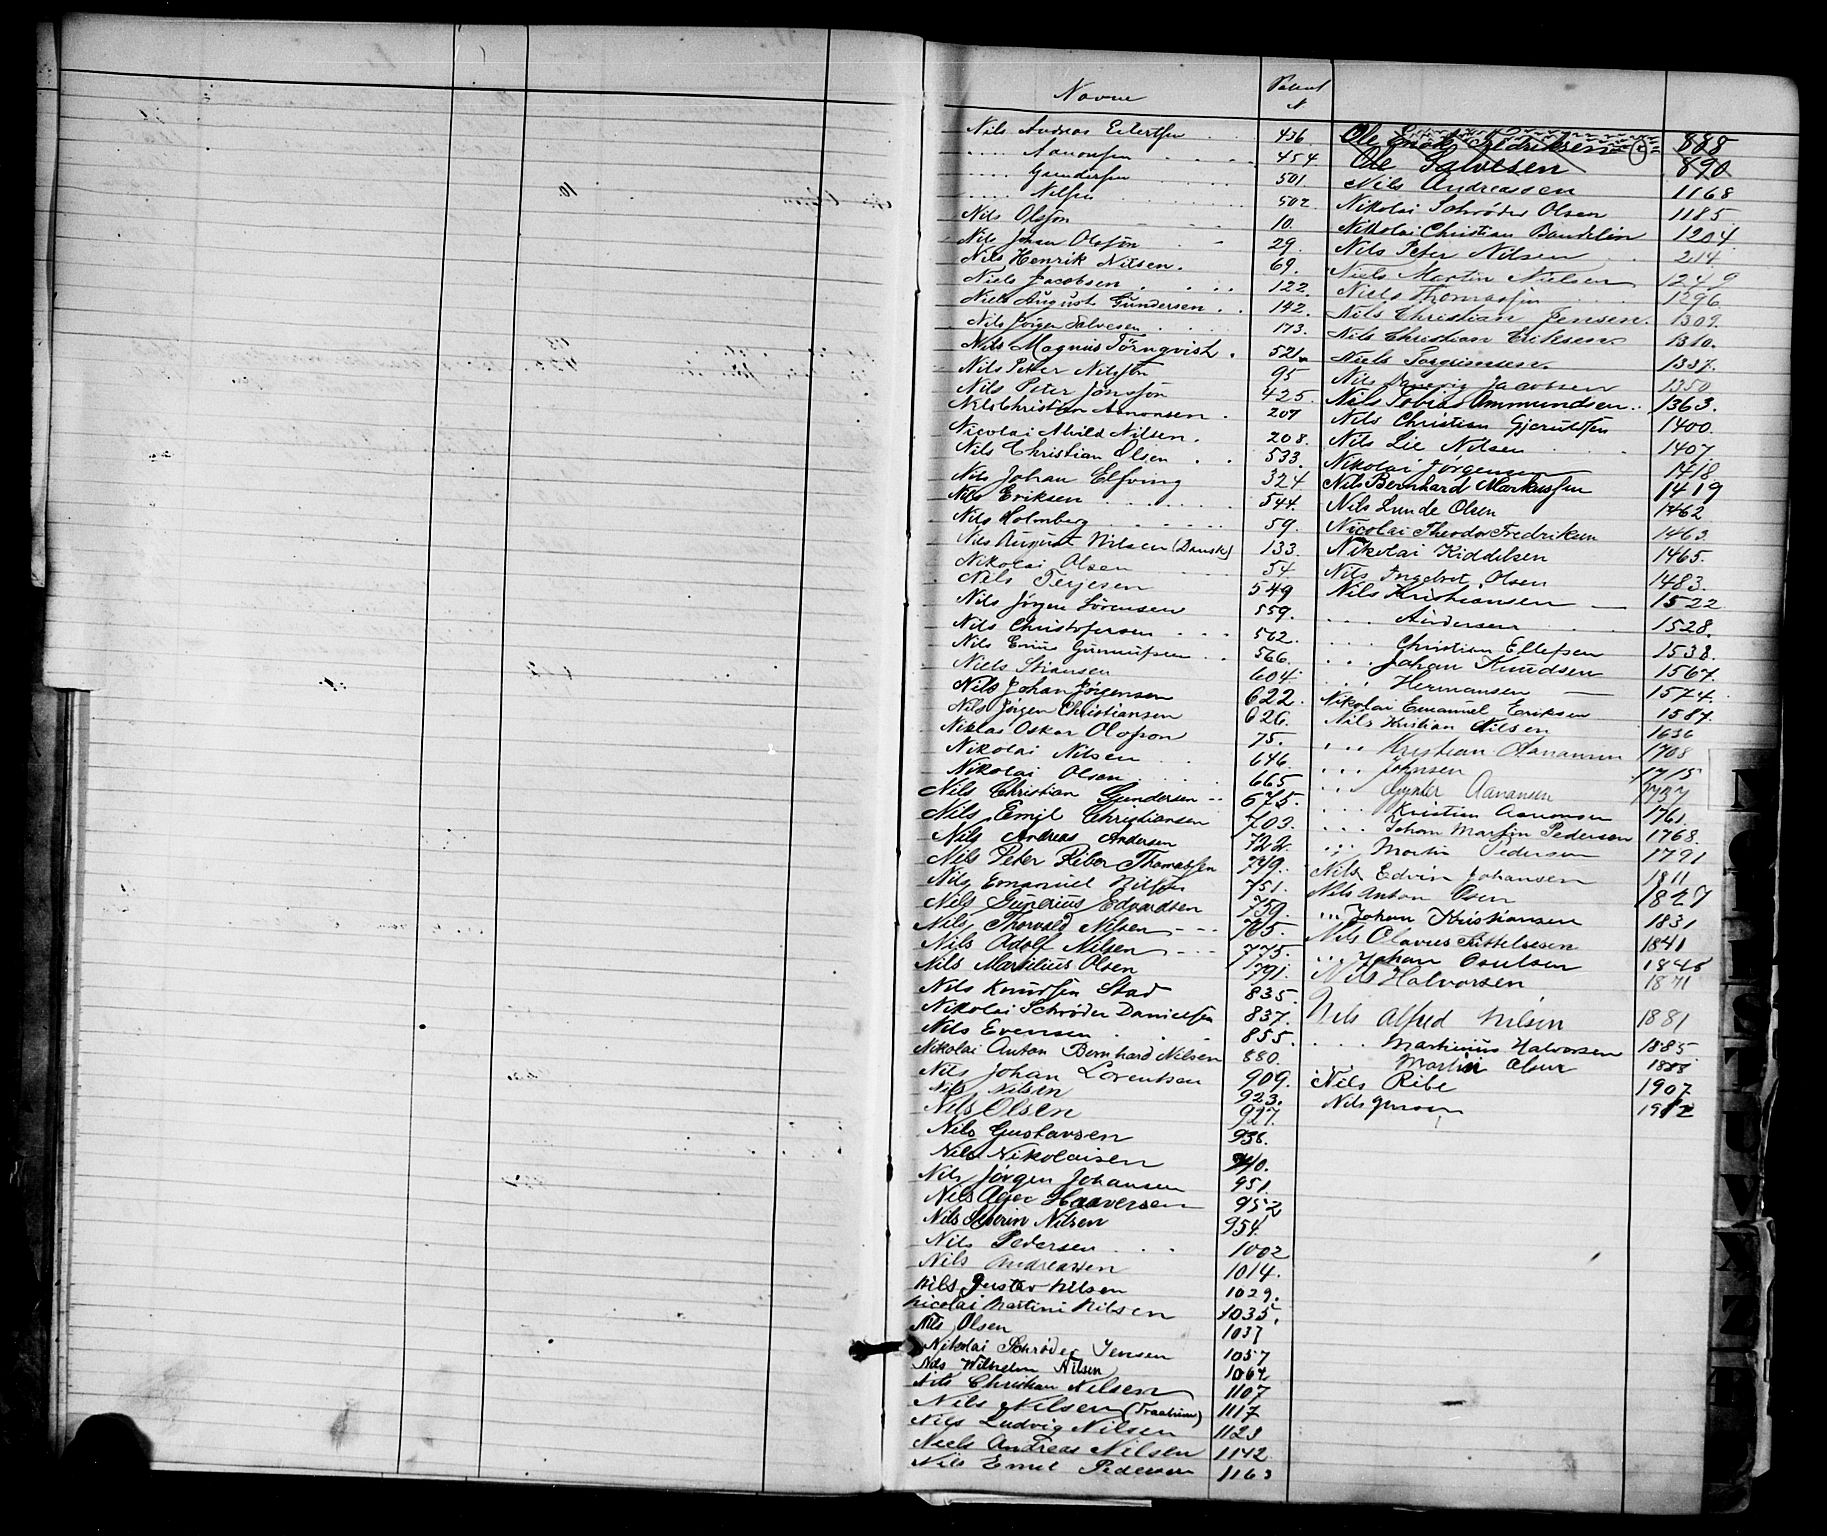 Navne
Patent N.
Nils Andreas Eilertsen 436.
..... Aanonsen 454
..... Gundersen 501.
..... Nilsen 502.
Nils Olsson 10.
Nils Johan Olsson 29.
Nils Henrik Nilsen. 69.
Niels Jacobsen 122.
Niels August Gundersen 142.
Nils Jörgen Salvesen 173.
Nils Magnus Törnqvist. 521.
Nils Petter Nilsson 95
Nils Peter Jonsson 425.
Nils Christian Aanonsen. 207
Nicolai Nilsen. 208.
Nils Christian Olsen 533.
Nils Johan Elfving 324
Nils Eriksen 544.
Nils Holmberg 59.
Nils August Nilsen (Dansk) 133.
Nikolai Olsen 54
Nils Terjesen 549
Nils Jörgen Sörensen 559.
Nils Christofersen 562.
Nils Gunnufsen 566.
Niels Stiansen 604.
Nils Johan Jörgensen 622.
Nils Jörgen Christiansen 626.
Niklas Oskar Olofson 75.
Nikolai Nilsen 646.
Nikolai Olsen 665
Nils Christian Gundersen 675.
Nils Emil Christiansen 703.
Nils Andreas Andersen 722.
Nils Peter Riber Thomassen 749.
Nils Emanuel Nilsen 751.
Nils Edvardsen 759.
Nils Thorvald Nilsen 765.
Nils Adolf Nilsen 775.
Nils Martilius Olsen 791.
Nils Knudsen Stad 835.
Nikolai Schrøder Danielsen 837.
Nils Evensen 855.
Nikolai Anton Bernhard Nilsen 880.
Nils Johan Lorentsen 909.
Nils Nilsen 923.
Nils Olsen 927.
Nils Gustavsen 936.
Nils Nikolaisen 940.
Nils Jörgen Johansen 951.
Nils Haaversen 952
Nils Severin Nilsen 954.
Nils Pedersen 1002
Nils Andreassen 1014.
Nils Gustav Nilsen 1029.
Nicolai Martini Nilsen 1035.
Nils Olsen 1037
Nikolai Schrøder Jensen 1057
Nils Wilhelm Nilsen 1064
Nils Christian Nilsen 1107
Nils Nilsen 1117
Nils Ludvig Nilsen 1123
Niels Andreas Nilsen 1142
Nils Emil Pedersen 1163
Ole Enok Fredriksen 888
Ole Salvesen 890
Nils Andreassen 1168
Nikolai Schrøder Olsen 1185
Nikolai Christian Bandelin 1204
Nils Peter Nilsen 214.
Niels Martin Nielsen 1249
Niels Thomassen 1296
Nils Christian Jensen. 1309.
Nils Christian Eriksen 1310.
Niels Torgrimsen. 1337.
Nils Jacobsen 1350
Nils Tobias Ommundsen 1363.
Nils Christian Gjeruldsen 1400.
Nils Lie Nilsen 1407.
Nikolai Jørgensen 1418
Nils Bernhard Markussen 1419
Nils Lunde Olsen 1462
Nicolai Theodor Fredriksen 1463.
Nikolai Kiddelsen 1465.
Nils Ingebret Olsen 1483.
Nils Kristiansen 1522
... Andersen 1528.
... Christian Ellefsen 1538.
... Johan Knudsen 1567.
... Hermansen 1574.
Nikolai Emanuel Eriksen 1587.
Nils Kristian Nilsen 1636
... Kristian Aanansen 1708
... Johnsen 1715
... Aanansen 1737
... Kristian Aanonsen 1761.
... Johan Martin Pedersen 1768.
... Martin Pedersen 1791
Nils Edvin Johansen 1811
Nils Anton Osen 1827
... Johan Kristiansen 1831
Nils Olavus Kittelsesen 1841
... Johan Osulsen 1845
Nils Halvorsen 1871
Nils Alfred Nilsen 1881
.... Martinius Halvorsen 1885.
Martin Olsen 1888.
Nils Ribe 1907
Nils Jensen 1912